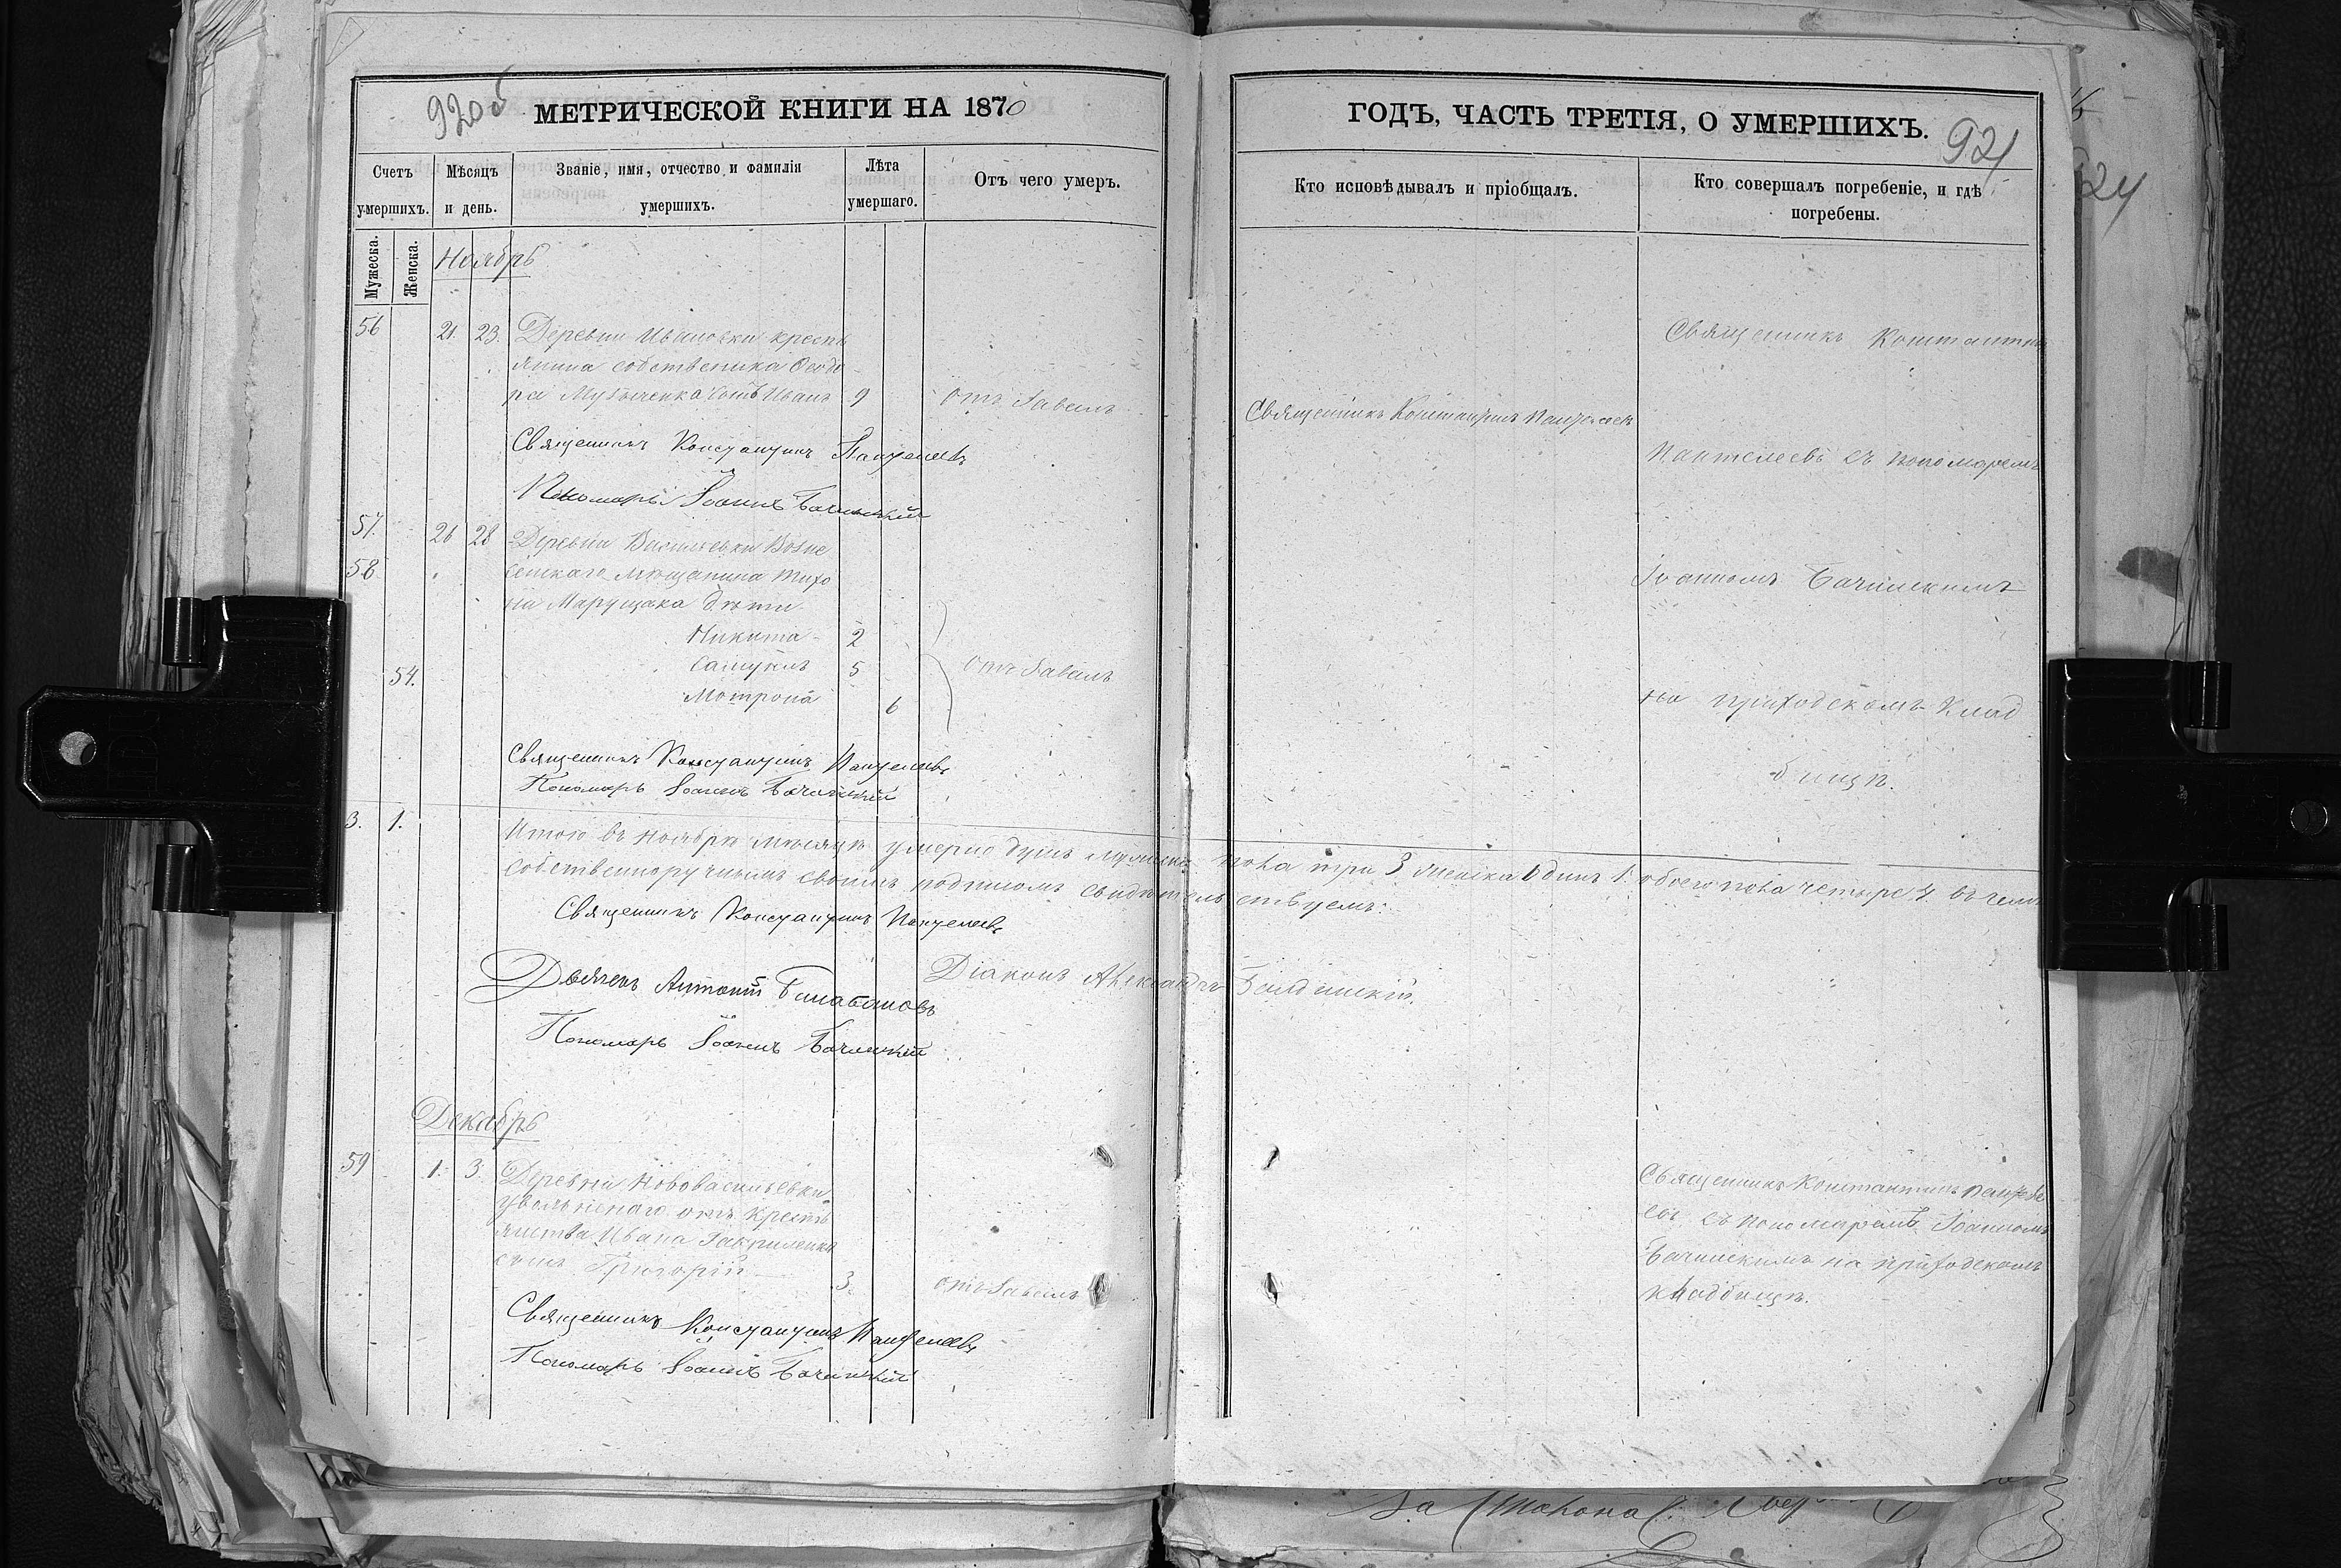 920об
МЕТРИЧЕСКОЙ КНИГИ НА 1870
Счетъ умершихъ.
Мѣсяцъ и день.
Званіе, имя, отчество и фамилія умершихъ.
Лѣта умершаго.
Отъ чего умеръ.
Мужеска.
Женска.
Ноябрь
56 21. 23. Деревни Ивановки кресть
янина собственика Ѳеодо
ра сынъ Иванъ 9 отъ
Священникъ Константинъ Пантелеевъ
Пономарь Іоаннъ Бачинскій
57. 26 28 Деревни Васильевки Возне
58 сенскаго мѣщанина Тихо
на Марущака дѣти
Никита 2
Самуилъ 5 отъ
54. Мотрона 6
Священникъ Константинъ Пантелеевъ
Пономарь Іоаннъ Бачинскій
3. 1. Итого въ ноябрѣ мѣсяцѣ умерло душъ мужеска пола три 3 женска одинъ 1. обоего пола четыре 4. въ чемъ
собственноручнымъ своимъ подписомъ свидѣтельствуемъ:
Священникъ Константинъ Пантелеевъ
Діаконъ Александръ
Дьячекъ Антоній Балабановъ
Пономарь Іоаннъ Бачинскій
Декабрь
59 1. 3. Деревни Нововасильевки
увольненаго отъ кресть
янства Ивана Гавриленка
сынъ Григорій 3. отъ
Священникъ Константинъ Пантелеевъ
Пономарь Іоаннъ Бачинскій
ГОДЪ, ЧАСТЬ ТРЕТІЯ, О УМЕРШИХЪ.
921
Кто исповѣдывалъ и пріобщалъ.
Кто совершалъ погребеніе, и гдѣ
погребены.
Священникъ Константинъ
Священникъ Константинъ Пантелеевъ
Пантелеевъ съ пономаремъ
Іоанномъ Бачинскимъ
на приходскомъ клад
бищѣ.
Священникъ Константинъ Пантеле
евъ съ пономаремъ Іоанномъ
Бачинскимъ на приходскомъ
кладбищѣ.